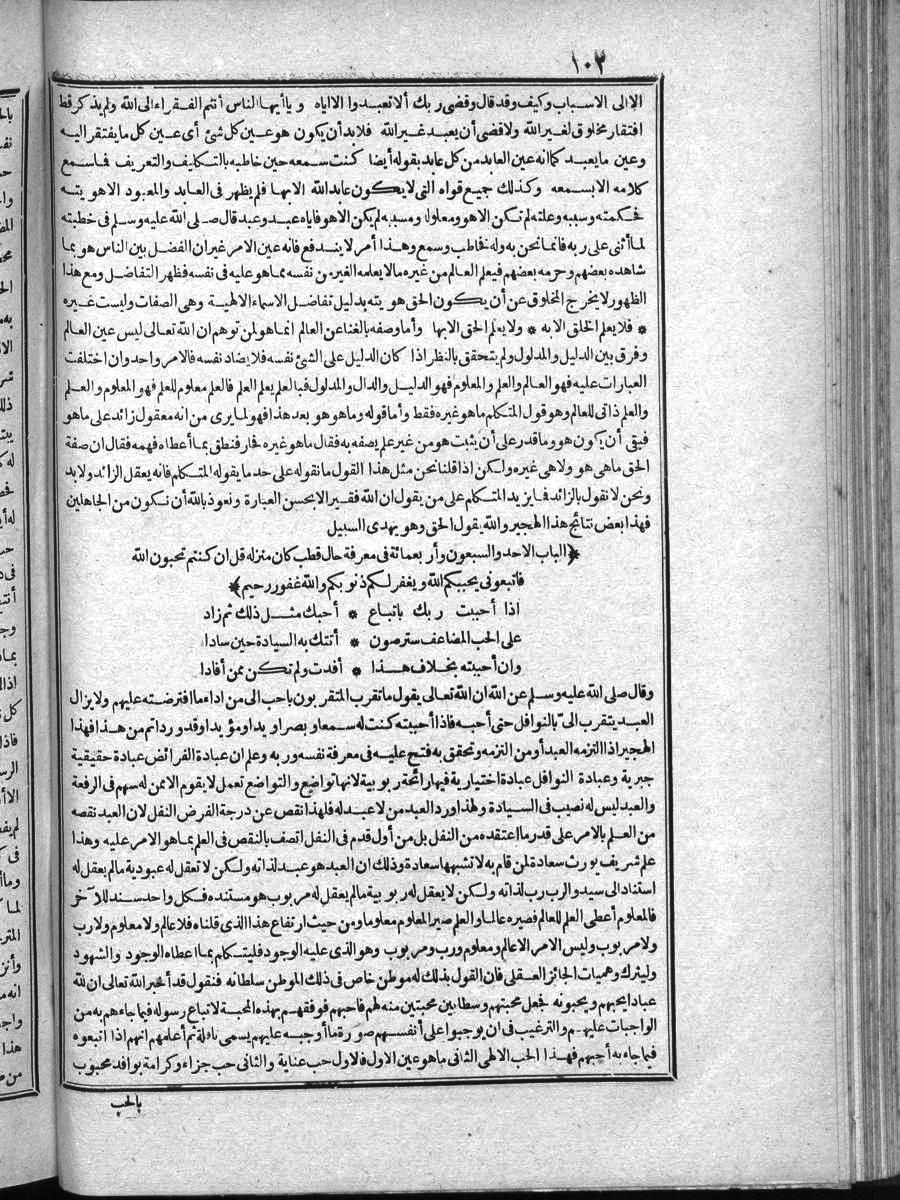 ١٠٢
الا الى الاسباب وكيف وقد قال وقضى ربك ألا تعبدوا الا اياه ويا أيها الناس أنتم الفقراء الى الله ولم يذكر قط
افتقار مخلوق لغير الله ولا قضى أن يعبد غير الله فلا بد أن يكون هو عين كل شئ أى عين كل ما يفتقر اليه
وعين ما يعبد كما انه عين العابد من كل عابد بقوله أيضا كنت سمعه حين خاطبه بالتكليف والتعريف فما سمع
كلامه الا بسمعه وكذلك جميع قواه التى لا يكون عابد الله الا بها فلم يظهر فى العابد والمعبود الا هويته
فحكمته وسببه وعلته لم تكن الا هو ومعلوله ومسببه لم يكن الا هو فاياه عبد وعبد قال صلى الله عليه وسلم فى خطبته
لما أثنى على ربه فانما نحن به وله فخاطب وسمع وهذا أمر لا يندفع فانه عين الامر غير ان الفضل بين الناس هو بما
شاهده بعضهم وحرمه بعضهم فيعلم العالم من غيره ما لا يعلمه الغير من نفسه مما هو عليه فى نفسه فظهر التفاضل ومع هذا
الظهور لا يخرج المخلوق عن أن يكون الحق هويته بدليل تفاضل الاسماء الالهية وهى الصفات وليست غيره
* فلا يعلم الخلق الا به * ولا يعلم الحق الا بها وأما وصفه بالغنا عن العالم انما هو لمن توهم ان الله تعالى ليس عين العالم
وفرق بين الدليل والمدلول ولم يتحقق بالنظر اذا كان الدليل على الشئ نفسه فلا يضاد نفسه فالامر واحد وان اختلفت
العبارات عليه فهو العالم والعلم والمعلوم فهو الدليل والدال والمدلول فبالعلم يعلم العلم فالعلم معلوم للعلم فهو المعلوم والعلم
والعلم ذاتى للعالم وهو قول المتكلم ما هو غيره فقط وأما قوله وما هو هو بعد هذا فهو لما يرى من انه معقول زائد على ما هو
فبقى أن يكون هو وما قدر على أن يثبت هو من غير علم يصفه به فقال ما هو غيره فحار فنطق بما أعطاه فهمه فقال ان صفة
الحق ما هى هو ولا هى غيره ولكن اذا قلنا نحن مثل هذا القول ما نقوله على حد ما يقوله المتكلم فانه يعقل الزائد ولا بد
ونحن لا نقول بالزائد فما يزيد المتكلم على من يقول ان الله فقير الا بحسن العبارة ونعوذ بالله أن نكون من الجاهلين
فهذا بعض نتائج هذا الهجير والله يقول الحق وهو يهدى السبيل
﴿الباب الاحد والسبعون وأربعمائة فى معرفة حال قطب كان منزله قل ان كنتم تحبون الله
فاتبعونى يحببكم الله ويغفر لكم ذنوبكم والله غفور رحيم﴾
اذا أحببت ربك باتباع * أحبك مثل ذلك ثم زاد
على الحب المضاعف سترصون * أتتك به السيادة حين سادا
وان أحببته بخلاف هذا * أفدت ولم تكن ممن أفادا
وقال صلى الله عليه وسلم عن الله ان الله تعالى يقول ما تقرب المتقربون باحب الى من اداء ما افترضته عليهم ولا يزال
العبد يتقرب الىّ بالنوافل حتى أحبه فاذا أحببته كنت له سمعا وبصرا ويدا ومؤيدا وقد وردا تم من هذا فهذا
الهجير اذا التزمه العبد أو من التزمه وتحقق به فتح عليه فى معرفة نفسه وربه وعلم ان عبادة الفرائض عبادة حقيقية
جبرية وعبادة النوافل عبادة اختيارية فيها رائحة ربوبية لانها تواضع والتواضع تعمل لا يقوم الا ممن له سهم فى الرفعة
والعبد ليس له نصيب فى السيادة ولهذا ورد العبد من لا عبد له فلهذا نقص عن درجة الفرض النفل لان العبد نقصه
من العلم بالامر على قدر ما اعتقده من النفل بل من أول قدم فى النفل اتصف بالنقص فى العلم بما هو الامر عليه وهذا
علم شريف يورث سعادة لمن قام به لا تشبهها سعادة وذلك ان العبد هو عبد لذاته ولكن لا تعقل له عبودية ما لم يعقل له
استنادا الى سيد والرب رب لذاته ولكن لا يعقل له ربوبية ما لم يعقل له مربوب هو مستنده فكل واحد سند للآخر
فالمعلوم أعطى العلم للعالم فصيره عالما والعلم صير المعلوم معلوما ومن حيث ارتفاع هذا الذى قلناه فلا عالم ولا معلوم ولا رب
ولا مربوب وليس الامر الا عالم ومعلوم ورب ومربوب وهو الذى عليه الوجود فليتكلم بما أعطاه الوجود والشهود
وليترك وهميات الجائز العقلى فان القول بذلك له موطن خاص فى ذلك الموطن سلطانه فنقول قد أخبر الله تعالى ان لله
عبادا يحبهم ويحبونه فجعل محبتهم وسطا بين محبتين منه لهم فاحبهم فوفقهم بهذه المحبة لاتباع رسوله فيما جاءهم به من
الواجبات عليهم والترغيب فى ان يوجبوا على أنفسهم صورة ما أوجبه عليهم يسمى نافلة ثم أعلمهم انهم اذا اتبعوه
فيما جاء به أحبهم فهذا الحب الالهى الثانى ما هو عين الاول فالاول حب عناية والثانى حب جزاء وكرامة بوافد محبوب
بالحب